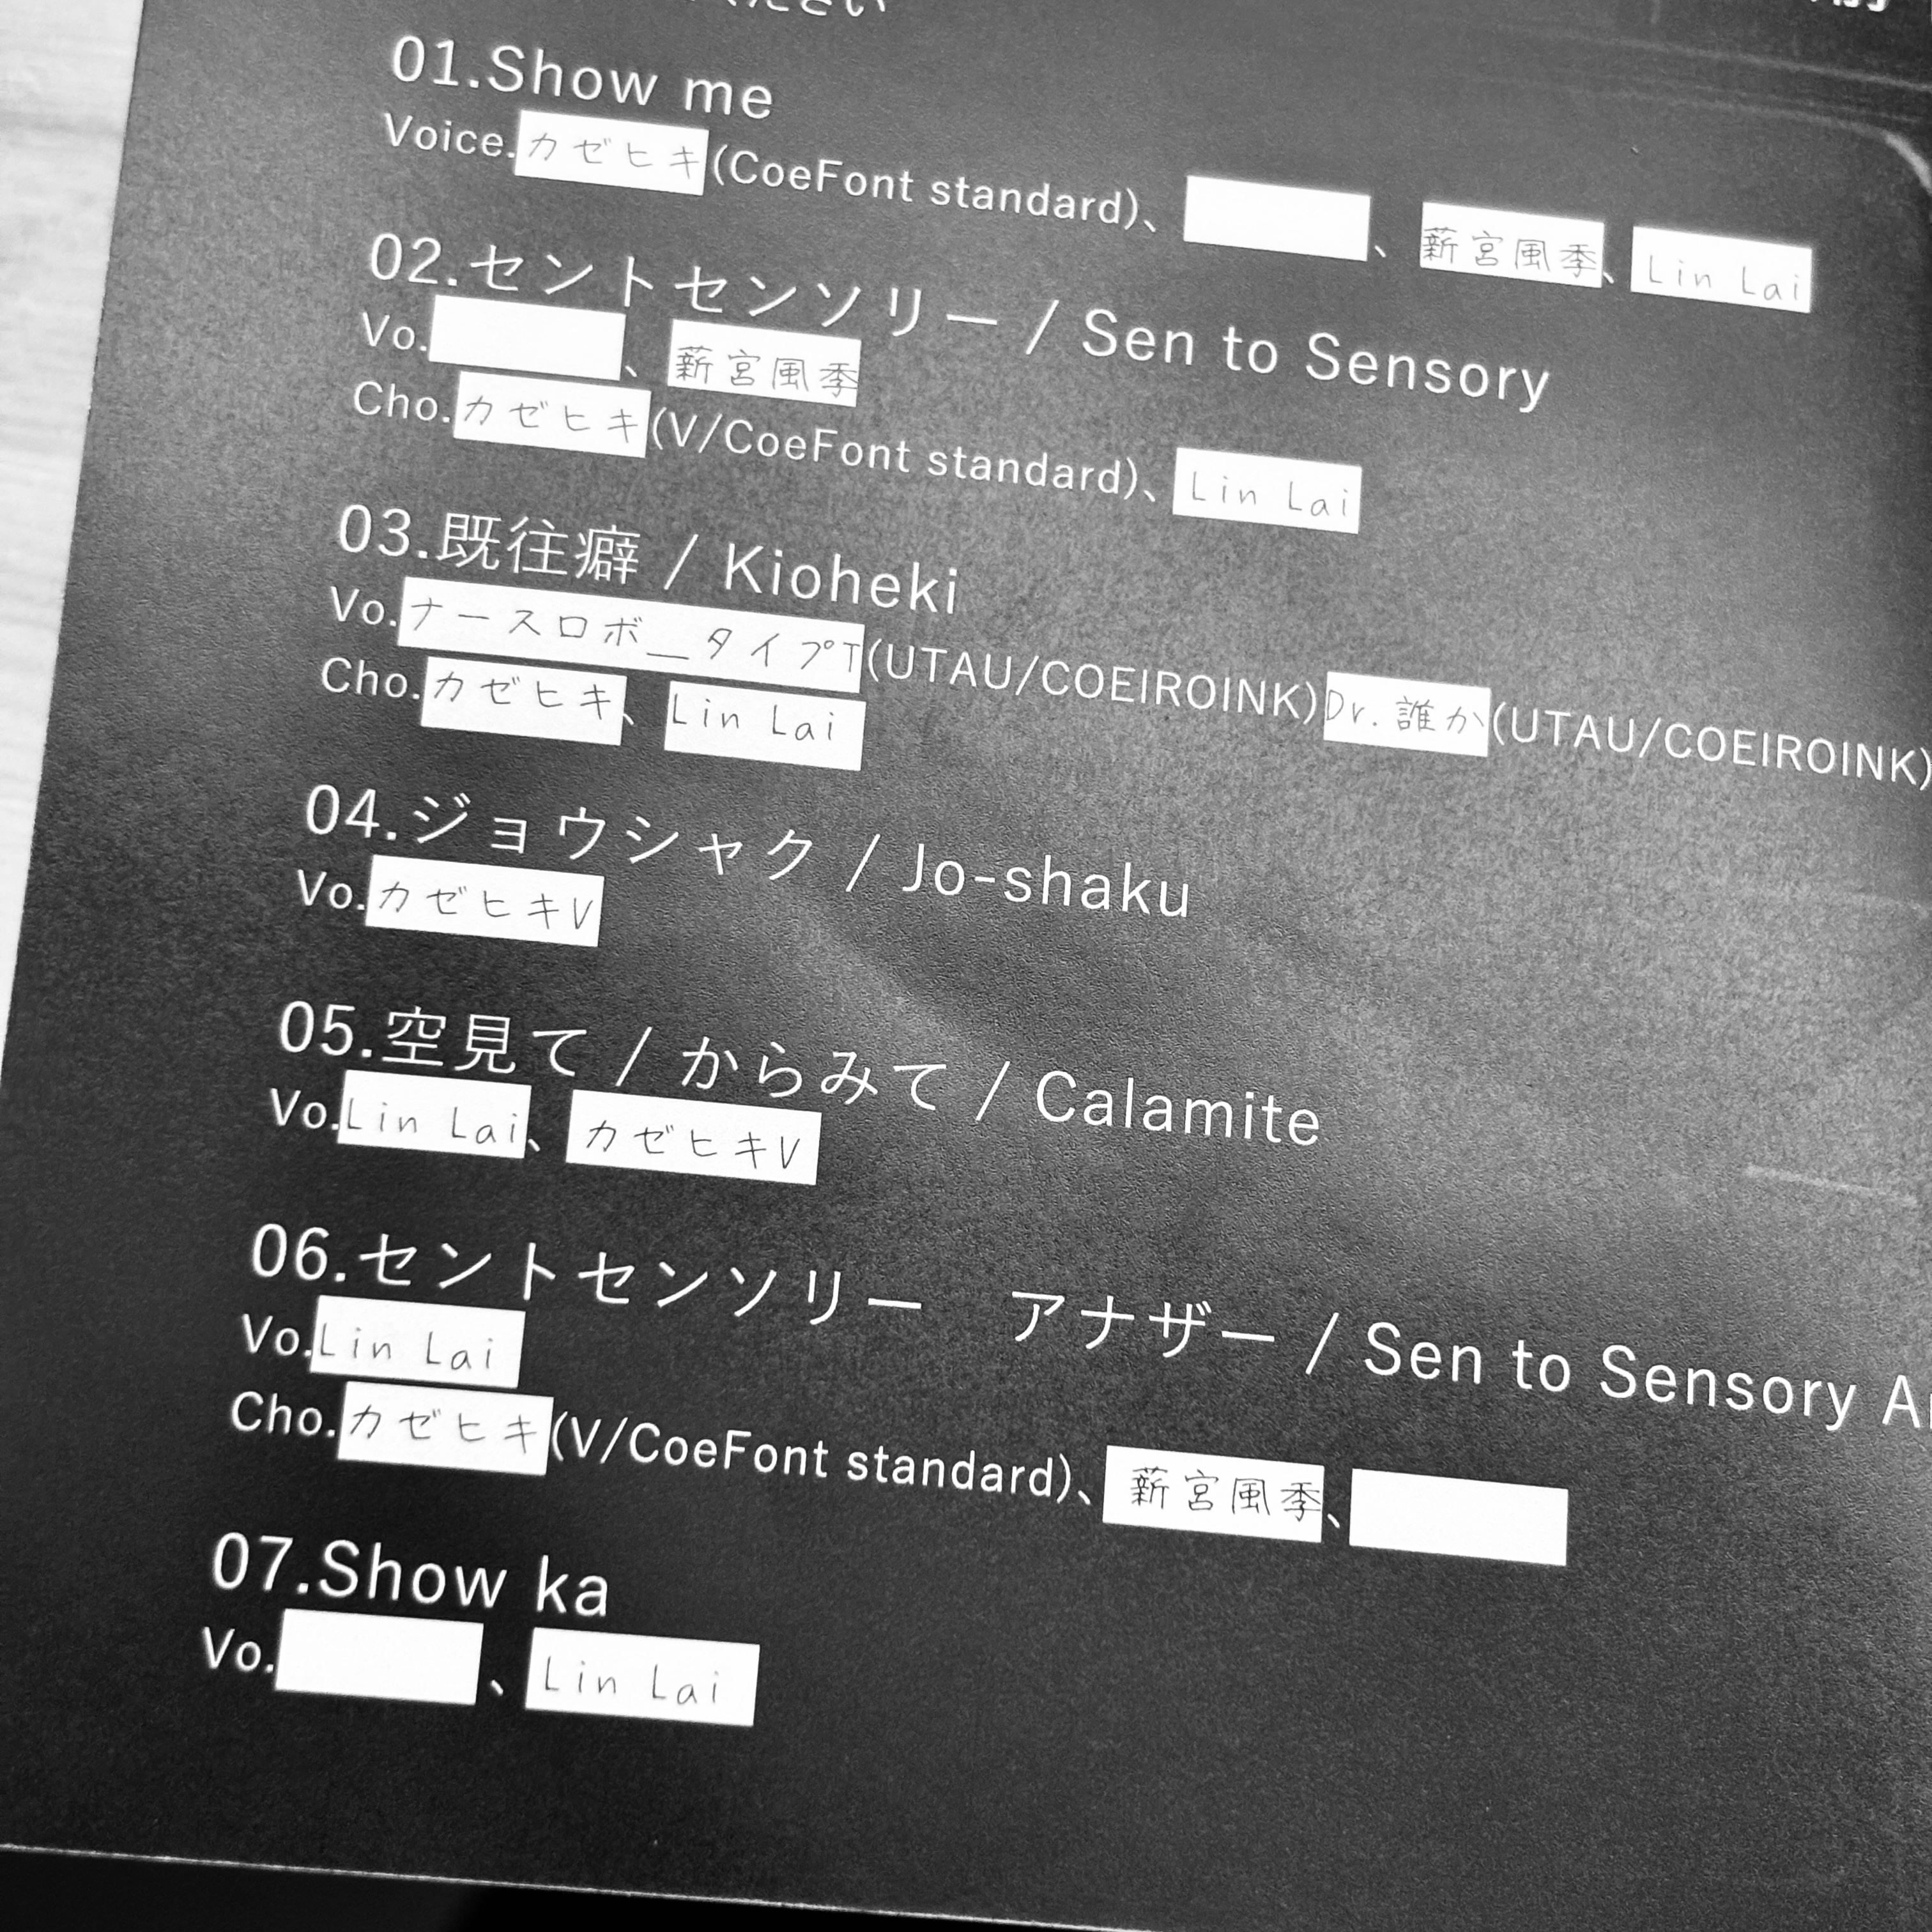 ください
01.Show me
Voice.カゼヒキ(CoeFont standard)、 、薪宮風季、Lin Lai
02.セントセンソリー / Sen to Sensory
Vo. 、薪宮風季
Cho.カゼヒキ(V/CoeFont standard)、Lin Lai
03.既往癖 / Kioheki
Vo.ナースロボ_タイプT(UTAU/COEIROINK)Dr.誰か(UTAU/COEIROINK)
Cho.カゼヒキ、Lin Lai
04.ジョウシャク / Jo-shaku
Vo.カゼヒキV
05.空見て / からみて / Calamite
Vo.Lin Lai、カゼヒキV
06.セントセンソリー　アナザー / Sen to Sensory A
Vo.Lin Lai
Cho.カゼヒキ(V/CoeFont standard)、薪宮風季、
07.Show ka
Vo. 、Lin Lai